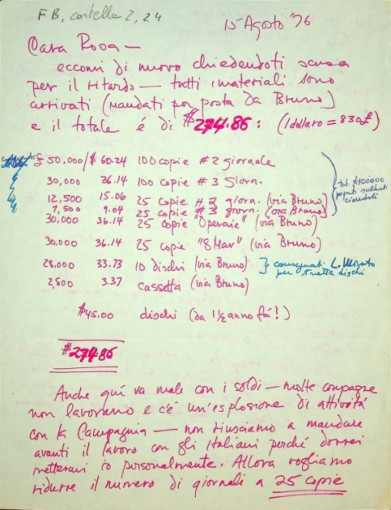 F B, cartella 2, 24
15 Agosto '76
Cara Rosa —
eccomi di nuovo chiedendoti scusa
per il ritardo — tutti i materiali sono
arrivati (mandati per posta da Bruno)
e il totale é di $274.86: (1 dollaro = 830£)
£ 50,000/$ 60.24 100 copie #2 giornale
30,000 36.14 100 copie #3 giorn.
12,500 15.06 25 copie #2 giorn. (via Bruno)
7,500 9.04 25 copie #3 giorn. (via Bruno)
30,000 36.14 25 copie "Operaie" (via Bruno)
30,000 36.14 25 copie "8 Mar" (via Bruno)
28,000 33.73 10 dischi (via Bruno)
2,800 3.37 cassetta (via Bruno)
$45.00 dischi (da 1½ anno fá!)
$274.86
tot. £100000
consegnati L.
per dischi
Anche quí va male con i soldi — molte compagne
non lavorano e c'é un'esplosione di attivitá
con la Campagnia — non riusciamo a mandare
avanti il lavoro con gli italiani perché dovrei
mettermi io personalmente. Allora vogliamo
ridurre il numero di giornali a 25 copie